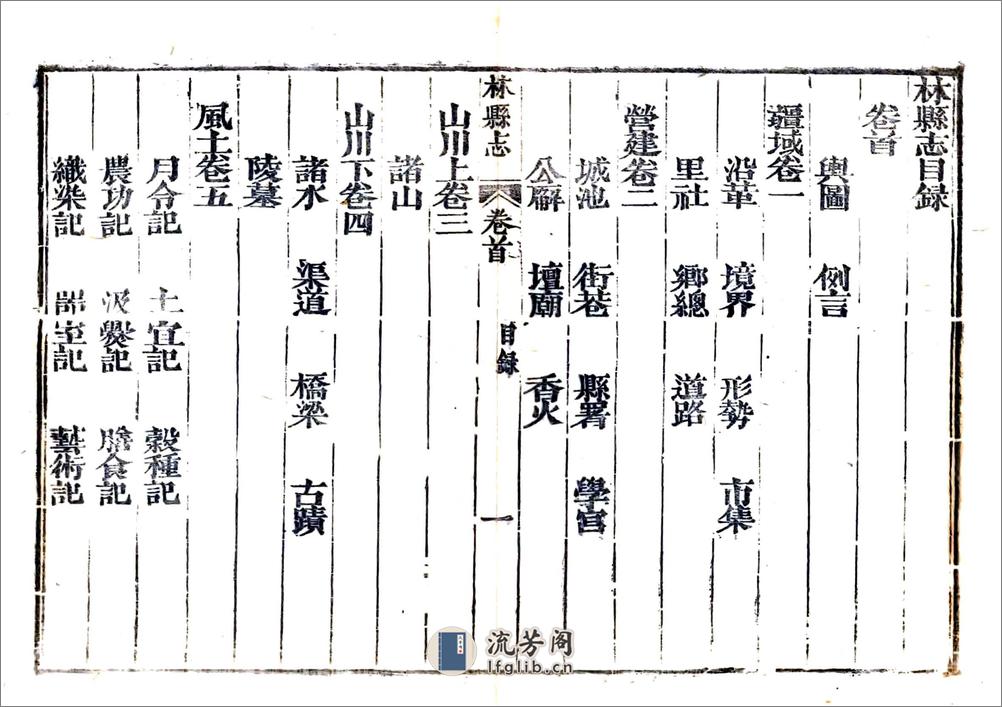 林縣志目録
卷首
輿圖 例言
疆域卷一
沿革 境界 形勢 市集
里社 鄉總 道路
營建卷二
城池 街巷 縣署 學宮
公廨 壇廟 香火
林縣志 卷首 目録 一
山川上卷三
諸山
山川下卷四
諸水 渠道 橋梁 古蹟
陵墓
風土卷五
月令記 土宜記 穀種記
農功記 汲爨記 膳食記
織染記 居室記 藝術記
流芳阁
lfglib.cn